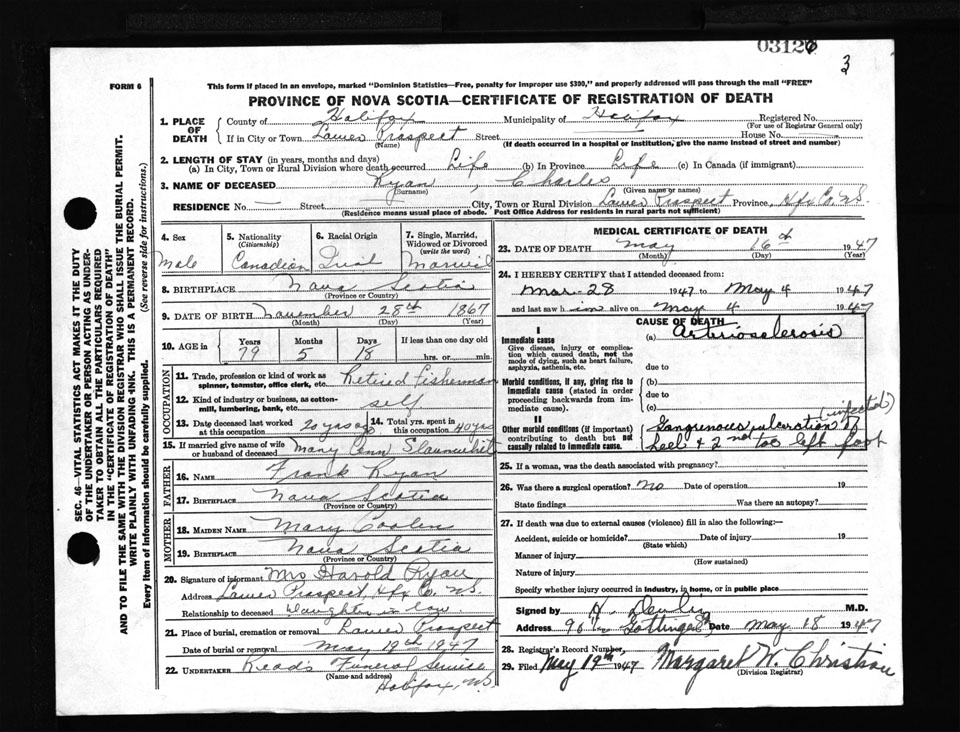 03126
3
FORM 6
This form if placed in an envelope, marked "Dominion Statistics—Free, penalty for improper use $300," and properly addressed will pass through the mail "FREE"
PROVINCE OF NOVA SCOTIA—CERTIFICATE OF REGISTRATION OF DEATH
SEC. 46—VITAL STATISTICS ACT MAKES IT THE DUTY
OF THE UNDERTAKER OR PERSON ACTING AS UNDER-
TAKER TO OBTAIN ALL THE PARTICULARS REQUIRED
IN THE "CERTIFICATE OF REGISTRATION OF DEATH"
AND TO FILE THE SAME WITH THE DIVISION REGISTRAR WHO SHALL ISSUE THE BURIAL PERMIT.
WRITE PLAINLY WITH UNFADING INK. THIS IS A PERMANENT RECORD.
Every item of Information should be carefully supplied. (See reverse side for instructions.)
1. PLACE OF DEATH County of Halifax Municipality of Halifax Registered No.
(For use of Registrar General only)
If in City or Town Lower Prospect Street House No.
(Name) (If death occurred in a hospital or institution, give the name instead of street and number)
2. LENGTH OF STAY (in years, months and days)
(a) In City, Town or Rural Division where death occurred Life (b) In Province Life (c) In Canada (if immigrant)
3. NAME OF DECEASED Ryan, Charles
(Surname) (Given name or names)
RESIDENCE No. — Street — City, Town or Rural Division Lower Prospect Province, Hfx Co. N.S.
(Residence means usual place of abode. Post Office Address for residents in rural parts not sufficient)
4. Sex
Male
5. Nationality
(Citizenship)
Canadian
6. Racial Origin
7. Single, Married,
Widowed or Divorced
(write the word)
Married
8. BIRTHPLACE Nova Scotia
(Province or Country)
9. DATE OF BIRTH November 28th 1867
(Month) (Day) (Year)
10. AGE in Years Months Days If less than one day old
79 5 18 hrs. or min.
OCCUPATION
11. Trade, profession or kind of work as
spinner, teamster, office clerk, etc. Retired fisherman
12. Kind of industry or business, as cotton-
mill, lumbering, bank, etc. self
13. Date deceased last worked
at this occupation 20 yrs ago
14. Total yrs. spent in
this occupation 40 yrs
15. If married give name of wife
or husband of deceased Mary Ann Slaunwhite
FATHER
16. Name Frank Ryan
17. Birthplace Nova Scotia
(Province or Country)
MOTHER
18. Maiden Name Mary Coolen
19. Birthplace Nova Scotia
(Province or Country)
20. Signature of informant Mrs Harold Ryan
Address Lower Prospect, Hfx Co. N.S.
Relationship to deceased Daughter in law
21. Place of burial, cremation or removal Lower Prospect
Date of burial or removal May 19th 1947
22. UNDERTAKER Read's Funeral Service
(Name and address)
Halifax, N.S.
MEDICAL CERTIFICATE OF DEATH
23. DATE OF DEATH May 16th 1947
(Month) (Day) (Year)
24. I HEREBY CERTIFY that I attended deceased from:
Mar-28 1947 to May 4 1947
and last saw him alive on May 4 1947
CAUSE OF DEATH
I
Immediate cause (a) Arteriosclerosis
Give disease, injury or complica-
tion which caused death, not the
mode of dying, such as heart failure,
asphyxia, asthenia, etc. due to
Morbid conditions, if any, giving rise to (b)
immediate cause (stated in order due to
proceeding backwards from im-
mediate cause). (c)
II
Other morbid conditions (if important)
contributing to death but not
causally related to immediate cause.
Gangrenous ulceration (infected) of
heel & 2nd toe left foot
25. If a woman, was the death associated with pregnancy?
26. Was there a surgical operation? no Date of operation 19
State findings Was there an autopsy?
27. If death was due to external causes (violence) fill in also the following:—
Accident, suicide or homicide? Date of injury 19
(State which)
Manner of injury
(How sustained)
Nature of injury
Specify whether injury occurred in industry, in home, or in public place
Signed by H. M.D.
Address Gottingen Date May 18 1947
28. Registrar's Record Number
29. Filed May 19th 1947 Margaret W. Christian
(Division Registrar)